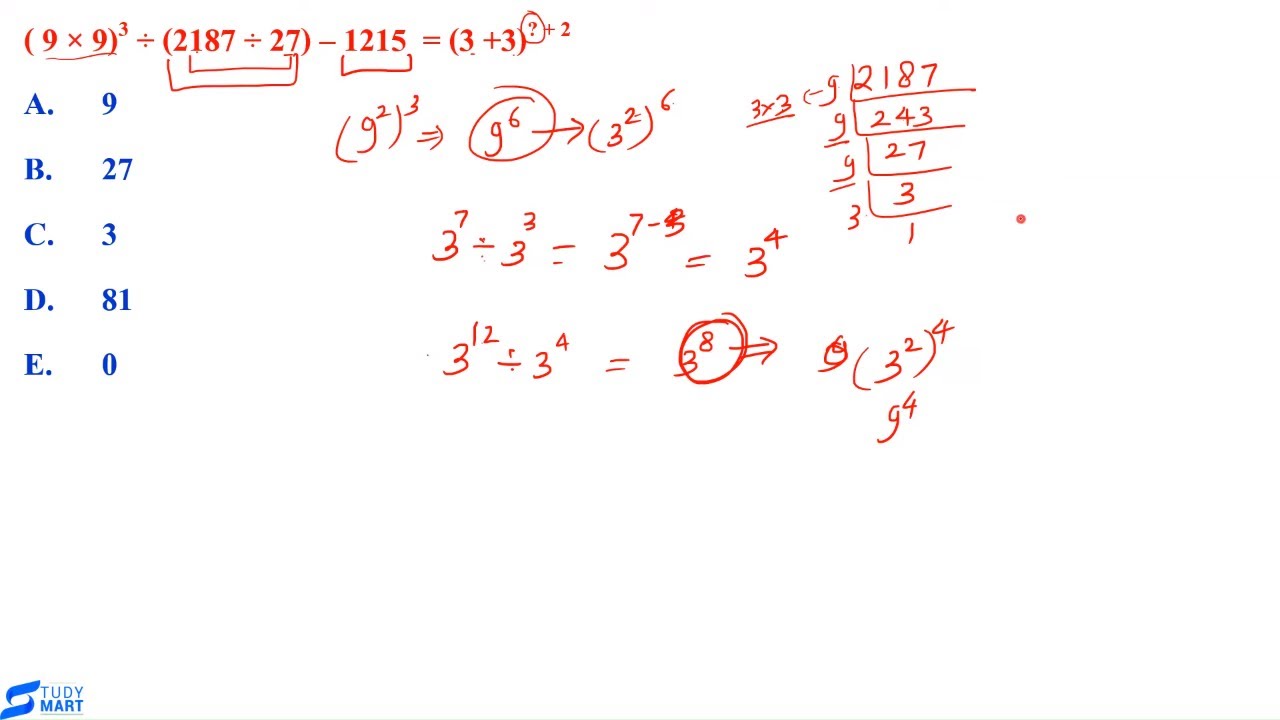 ( 9 × 9)³ ÷ (2187 ÷ 27) – 1215 = (3 +3)^? + 2
A. 9
B. 27
C. 3
D. 81
E. 0
(9²)³ ⇒ 9⁶ → (3²)⁶
3×3 ← 9 | 2187
9 | 243
9 | 27
3 | 3
1
3⁷ ÷ 3³ = 3⁷⁻³ = 3⁴
3¹² ÷ 3⁴ = 3⁸ ⇒ (3²)⁴
9⁴
STUDY
MART